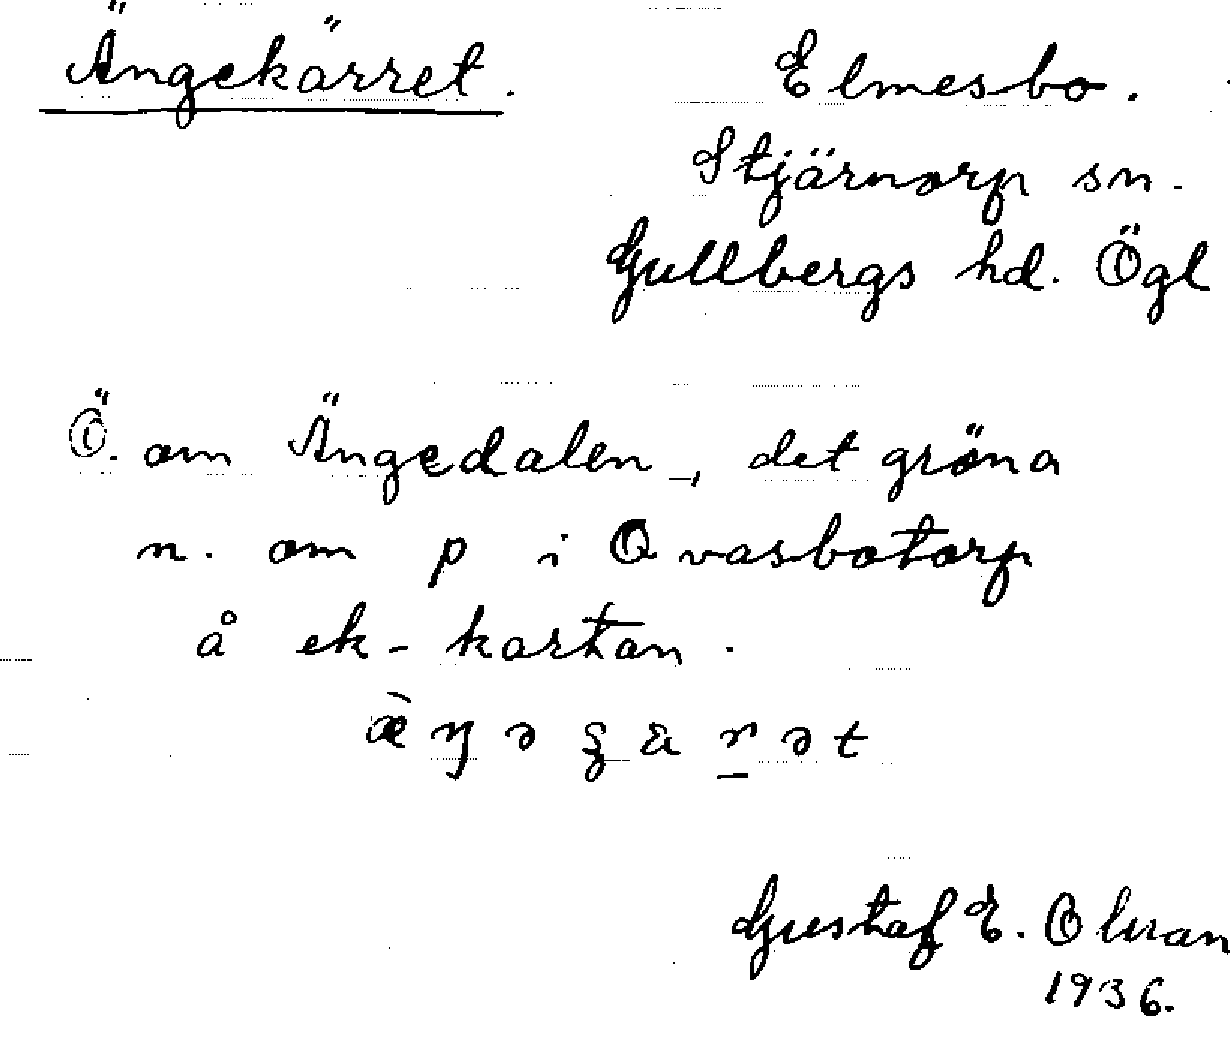 Ängekärret. Elmesbo.
Stjärnorp sn.
Gullbergs hd. Ögl
Ö. om Ängedalen, det gröna
n. om p i Qvasbotorp
å ek-kartan.
Gustaf E.
1936.